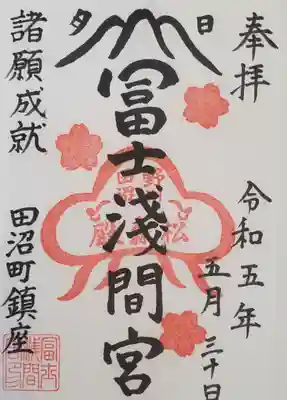 奉拝
令和五年
五月三十日
日
夕
冨士浅間宮
諸願成就
田沼町鎮座